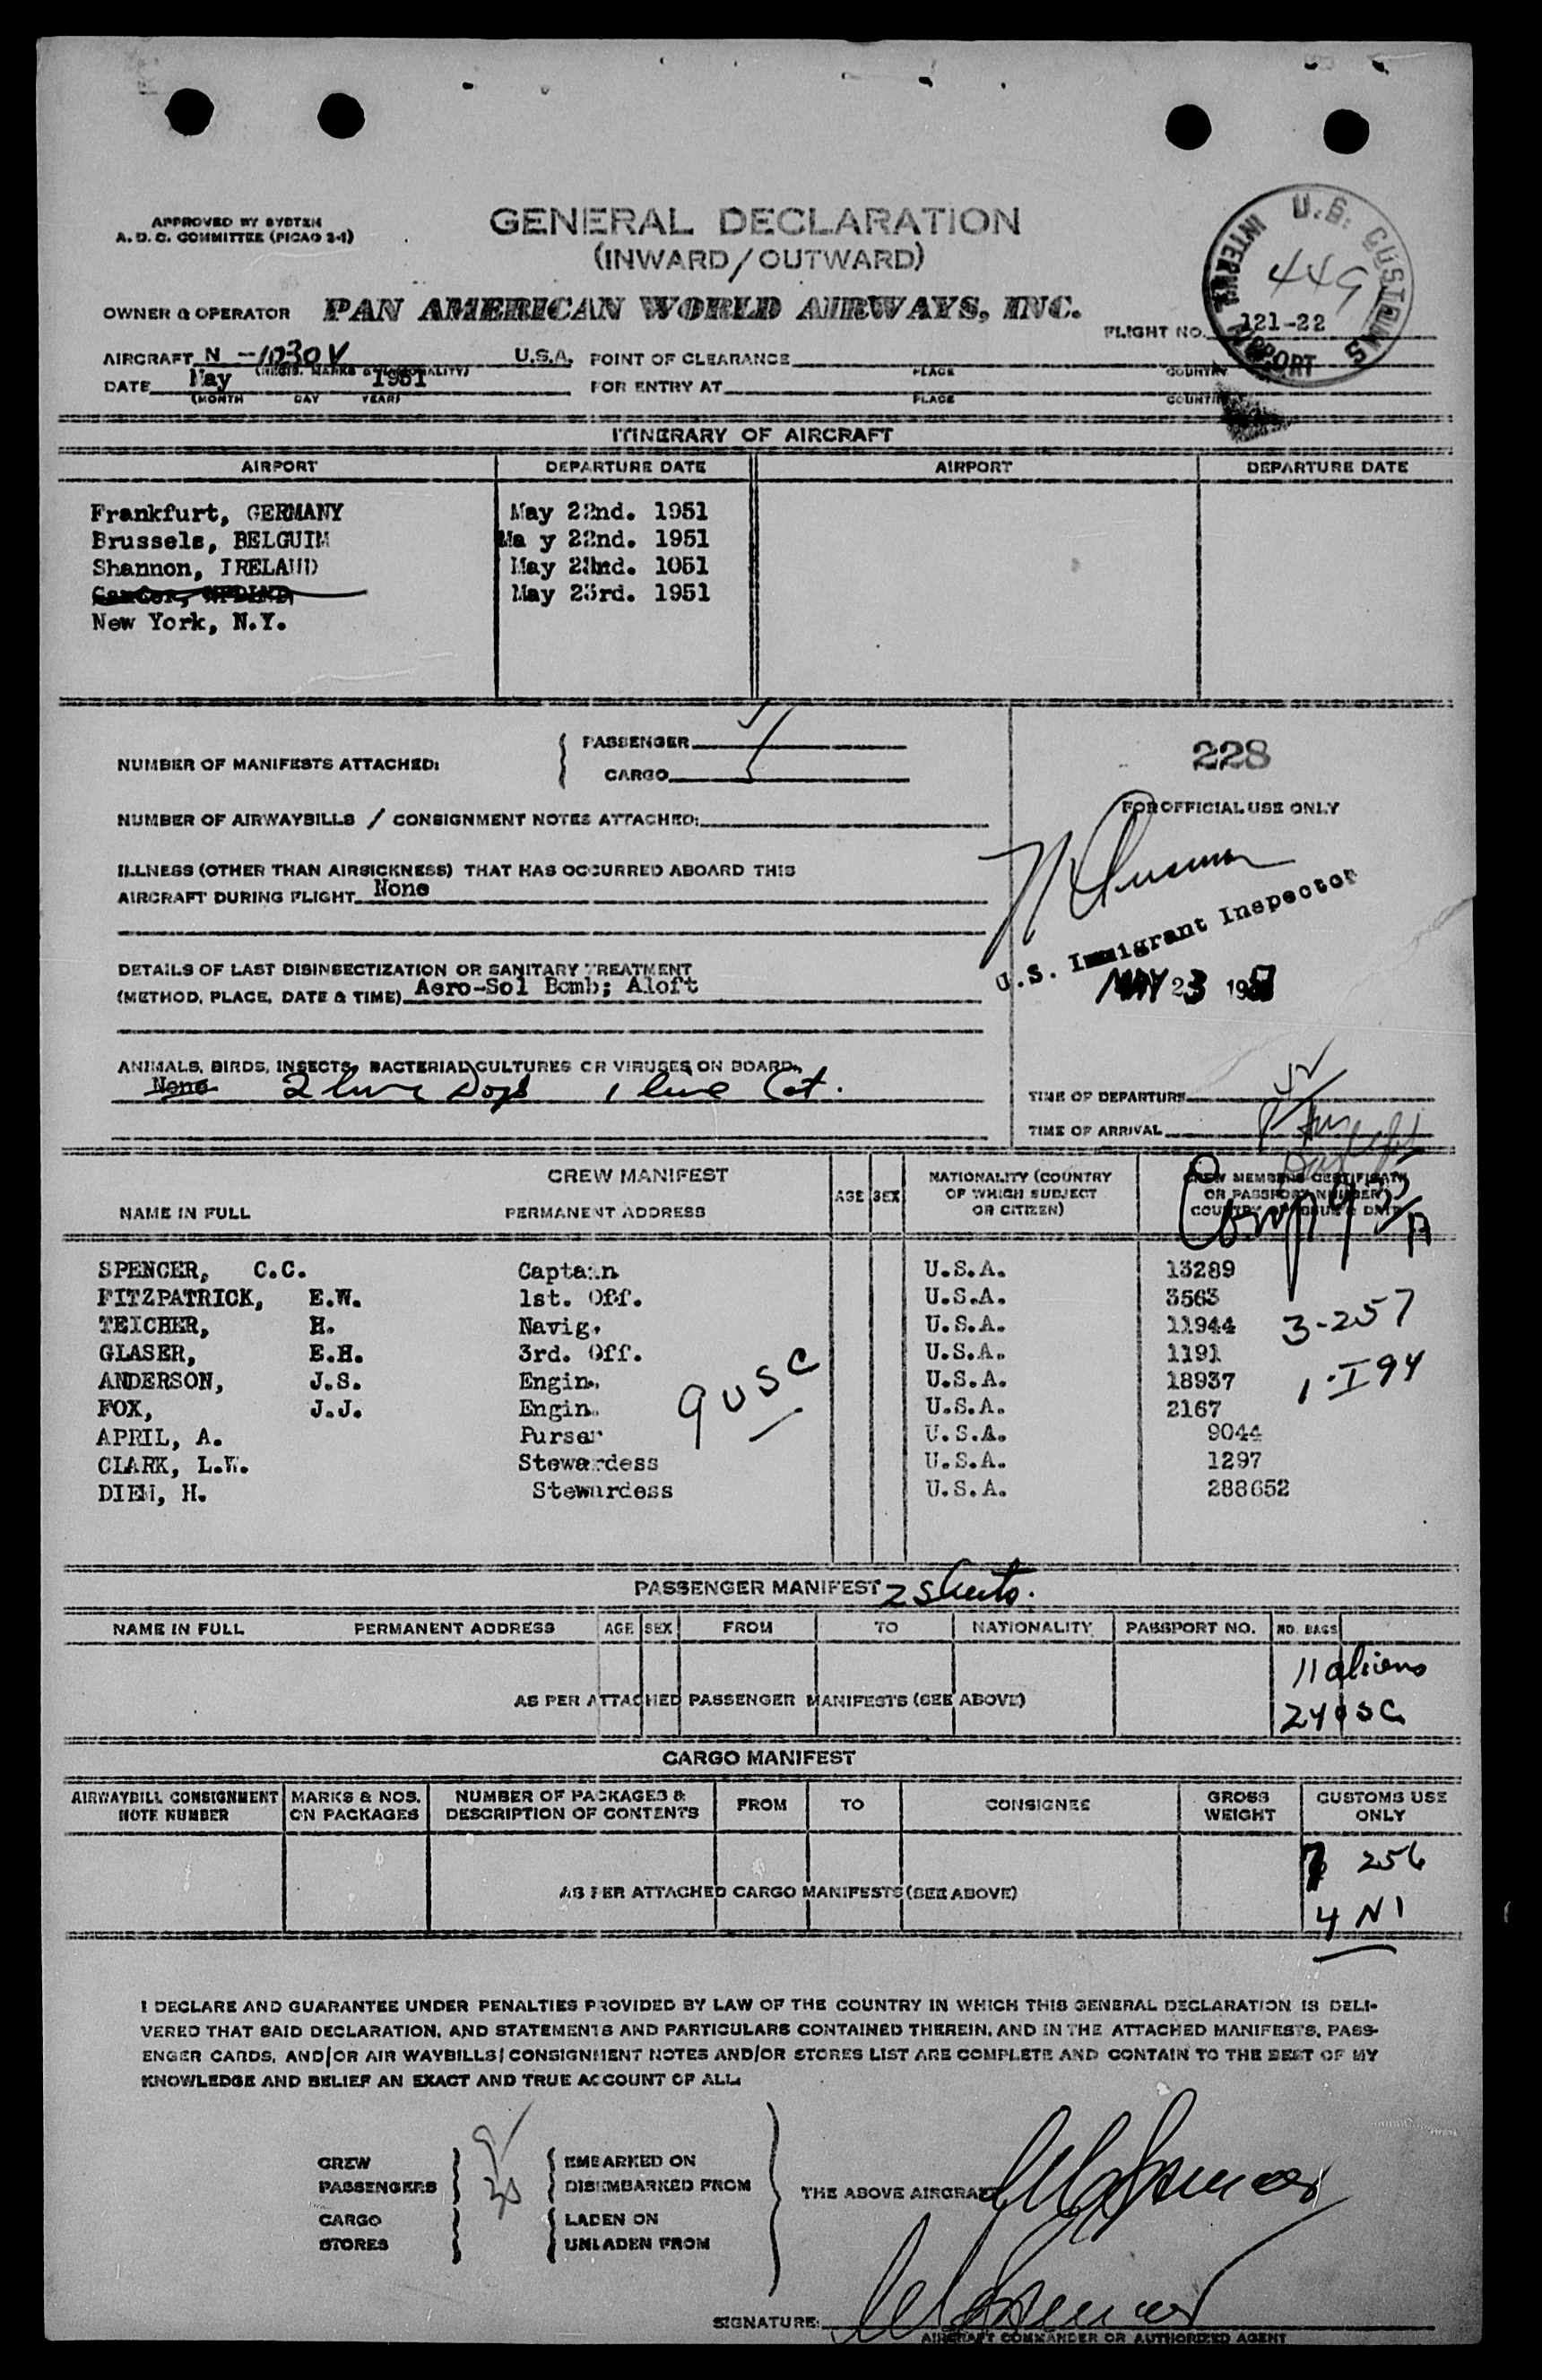 APPROVED BY SYSTEM
A. D. C. COMMITTEE (PICAO 2-1)
GENERAL DECLARATION
(INWARD/OUTWARD)
U.S. CUSTOMS
INTERN'L AIRPORT
449
OWNER & OPERATOR PAN AMERICAN WORLD AIRWAYS, INC.
FLIGHT NO. 121-22
AIRCRAFT N -1030V U.S.A. POINT OF CLEARANCE
(REGIS. MARKS & NATIONALITY) PLACE COUNTRY
DATE May 1951 FOR ENTRY AT
(MONTH DAY YEAR) PLACE COUNTRY
ITINERARY OF AIRCRAFT
AIRPORT DEPARTURE DATE AIRPORT DEPARTURE DATE
Frankfurt, GERMANY May 22nd. 1951
Brussels, BELGUIM Ma y 22nd. 1951
Shannon, IRELAND May 22nd. 1951
May 23rd. 1951
New York, N.Y.
NUMBER OF MANIFESTS ATTACHED: PASSENGER
CARGO
228
FOR OFFICIAL USE ONLY
NUMBER OF AIRWAYBILLS / CONSIGNMENT NOTES ATTACHED:
ILLNESS (OTHER THAN AIRSICKNESS) THAT HAS OCCURRED ABOARD THIS
AIRCRAFT DURING FLIGHT None
U.S. Immigrant Inspector
MAY 23 195
DETAILS OF LAST DISINSECTIZATION OR SANITARY TREATMENT
(METHOD, PLACE, DATE & TIME) Aero-Sol Bomb; Aloft
ANIMALS, BIRDS, INSECTS, BACTERIAL CULTURES OR VIRUSES ON BOARD
None 2 live Dogs 1 live Cat.
TIME OF DEPARTURE
TIME OF ARRIVAL
CREW MANIFEST
NAME IN FULL PERMANENT ADDRESS AGE SEX NATIONALITY (COUNTRY OF WHICH SUBJECT OR CITIZEN) CREW MEMBERS CERTIFICATE OR PASSPORT NUMBER COUNTRY OF ISSUE & DATE
Comp 935/A
SPENCER, C.C. Captain U.S.A. 13289
FITZPATRICK, E.W. 1st. Off. U.S.A. 3563
TEICHER, H. Navig. U.S.A. 11944 3-257
GLASER, E.H. 3rd. Off. U.S.A. 1191
ANDERSON, J.S. Engin. U.S.A. 18937 1-I94
FOX, J.J. Engin. 9 USC U.S.A. 2167
APRIL, A. Purser U.S.A. 9044
CLARK, L.W. Stewardess U.S.A. 1297
DIEM, H. Stewardess U.S.A. 288652
PASSENGER MANIFEST 2 sheets.
NAME IN FULL PERMANENT ADDRESS AGE SEX FROM TO NATIONALITY PASSPORT NO. NO. BAGS
11 aliens
AS PER ATTACHED PASSENGER MANIFESTS (SEE ABOVE)
24 USC
CARGO MANIFEST
AIRWAYBILL CONSIGNMENT NOTE NUMBER MARKS & NOS. ON PACKAGES NUMBER OF PACKAGES & DESCRIPTION OF CONTENTS FROM TO CONSIGNEE GROSS WEIGHT CUSTOMS USE ONLY
7 256
AS PER ATTACHED CARGO MANIFESTS (SEE ABOVE)
4 NI
I DECLARE AND GUARANTEE UNDER PENALTIES PROVIDED BY LAW OF THE COUNTRY IN WHICH THIS GENERAL DECLARATION IS DELI-
VERED THAT SAID DECLARATION, AND STATEMENTS AND PARTICULARS CONTAINED THEREIN, AND IN THE ATTACHED MANIFESTS, PASS-
ENGER CARDS, AND/OR AIR WAYBILLS/CONSIGNMENT NOTES AND/OR STORES LIST ARE COMPLETE AND CONTAIN TO THE BEST OF MY
KNOWLEDGE AND BELIEF AN EXACT AND TRUE ACCOUNT OF ALL:
CREW 9 EMBARKED ON
PASSENGERS 35 DISEMBARKED FROM THE ABOVE AIRCRAFT
CARGO LADEN ON
STORES UNLADEN FROM
SIGNATURE: CC Spencer
AIRCRAFT COMMANDER OR AUTHORIZED AGENT